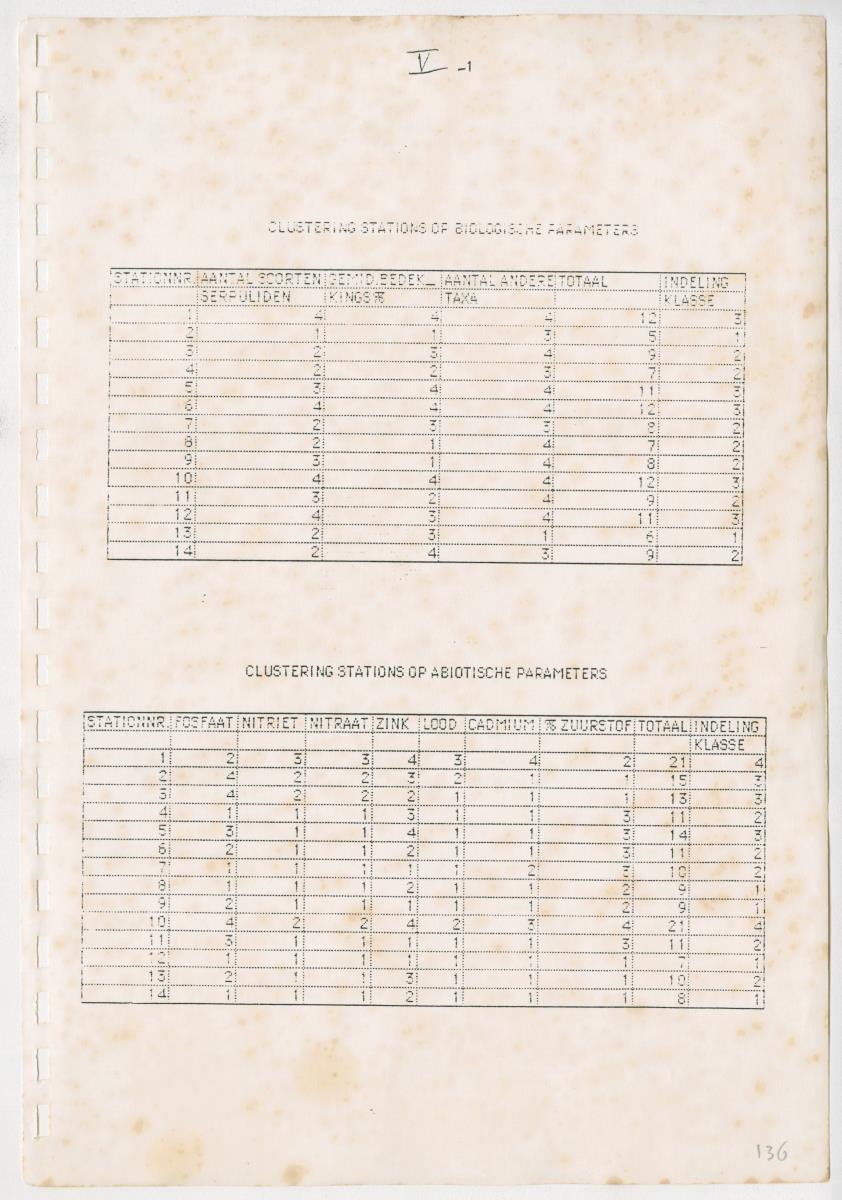 V -1
CLUSTERING STATIONS OP BIOLOGISCHE PARAMETERS
STATIONNR. AANTAL SOORTEN GEMID.BEDEK_ AANTAL ANDERE TOTAAL INDELING
SERPULIDEN KINGS% TAXA KLASSE
1 4 4 4 12 3
2 1 1 3 5 1
3 2 3 4 9 2
4 2 2 3 7 2
5 3 4 4 11 3
6 4 4 4 12 3
7 2 3 3 8 2
8 2 1 4 7 2
9 3 1 4 8 2
10 4 4 4 12 3
11 3 2 4 9 2
12 4 3 4 11 3
13 2 3 1 6 1
14 2 4 3 9 2
CLUSTERING STATIONS OP ABIOTISCHE PARAMETERS
STATIONNR. FOSFAAT NITRIET NITRAAT ZINK LOOD CADMIUM % ZUURSTOF TOTAAL INDELING
KLASSE
1 2 3 3 4 3 4 2 21 4
2 4 2 2 3 2 1 1 15 3
3 4 2 2 2 1 1 1 13 3
4 1 1 1 3 1 1 3 11 2
5 3 1 1 4 1 1 3 14 3
6 2 1 1 2 1 1 3 11 2
7 1 1 1 1 1 2 3 10 2
8 1 1 1 2 1 1 2 9 1
9 2 1 1 1 1 1 2 9 1
10 4 2 2 4 2 3 4 21 4
11 3 1 1 1 1 1 3 11 2
12 1 1 1 1 1 1 1 7 1
13 2 1 1 3 1 1 1 10 2
14 1 1 1 2 1 1 1 8 1
136